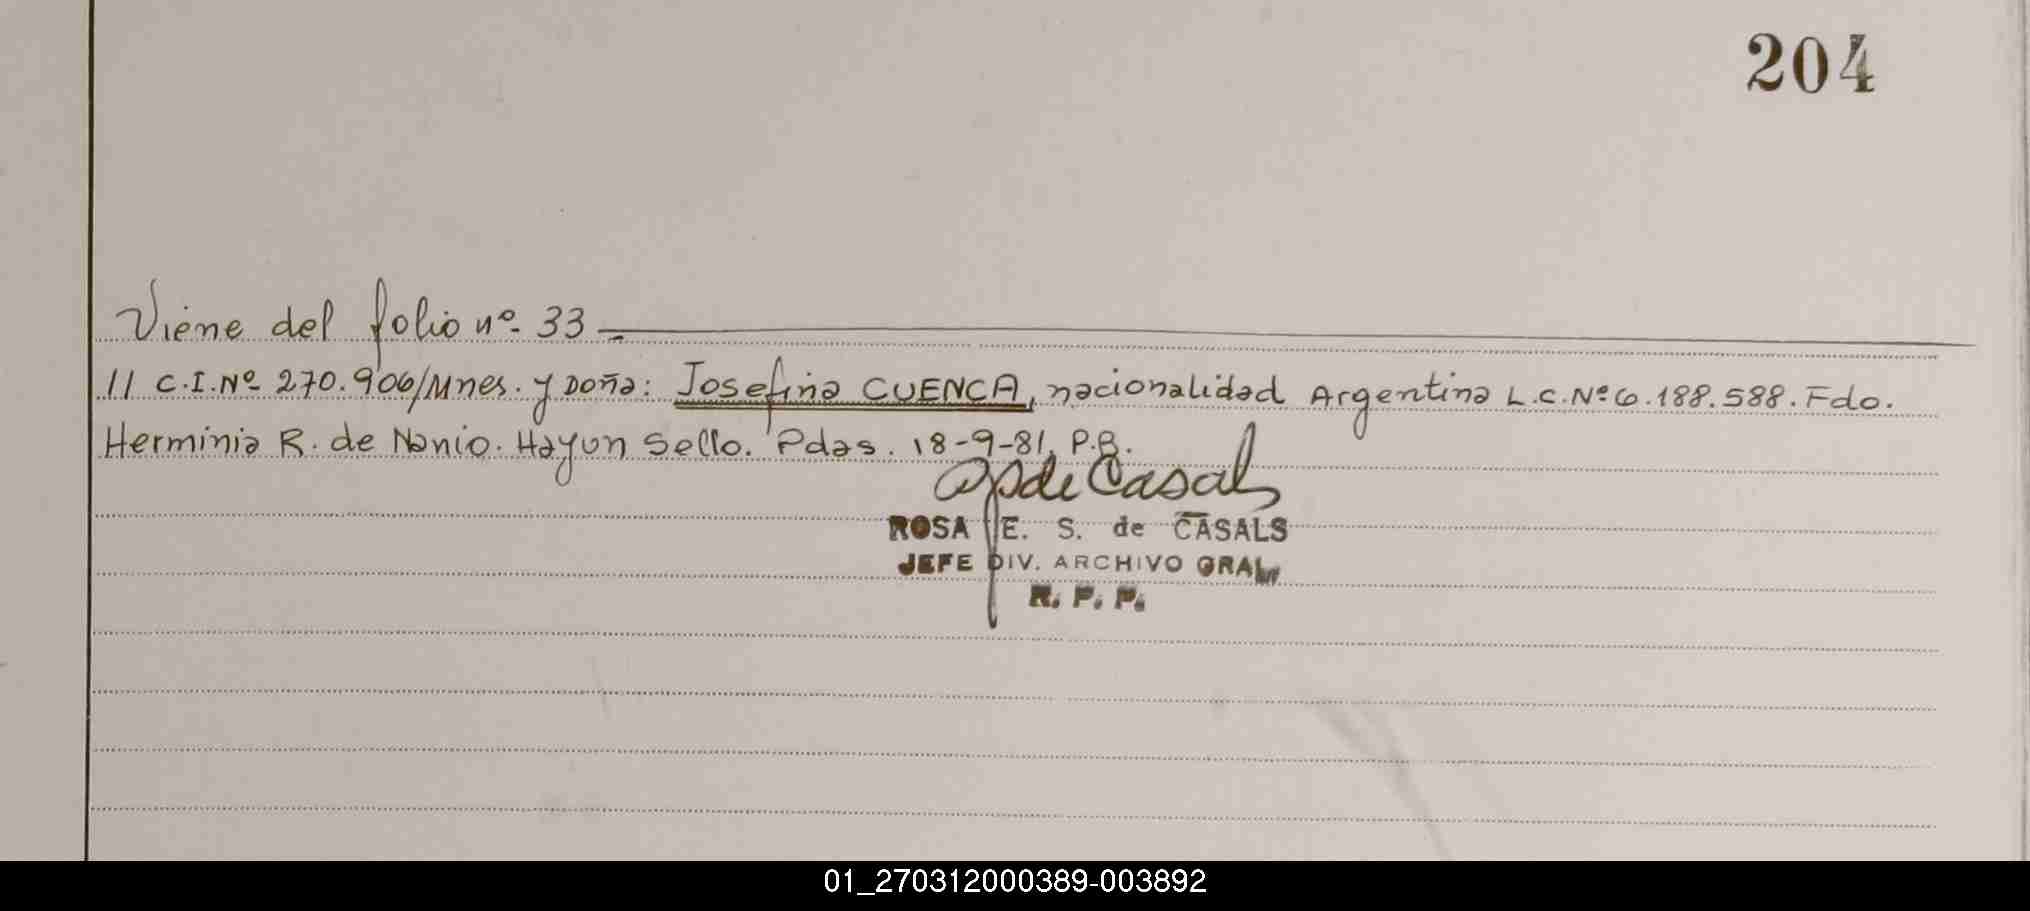 204
Viene del folio nº 33
// C.I.Nº 270.906/Mnes. y Doña: Josefina CUENCA, nacionalidad Argentina L.C.Nº 6.188.588. Fdo.
Herminia R. de Nanio. Hayun Sello. Pdas. 18-9-81. P.B.
de Casals
ROSA E. S. de CASALS
JEFE DIV. ARCHIVO GRAL
R. P. P.
01_270312000389-003892